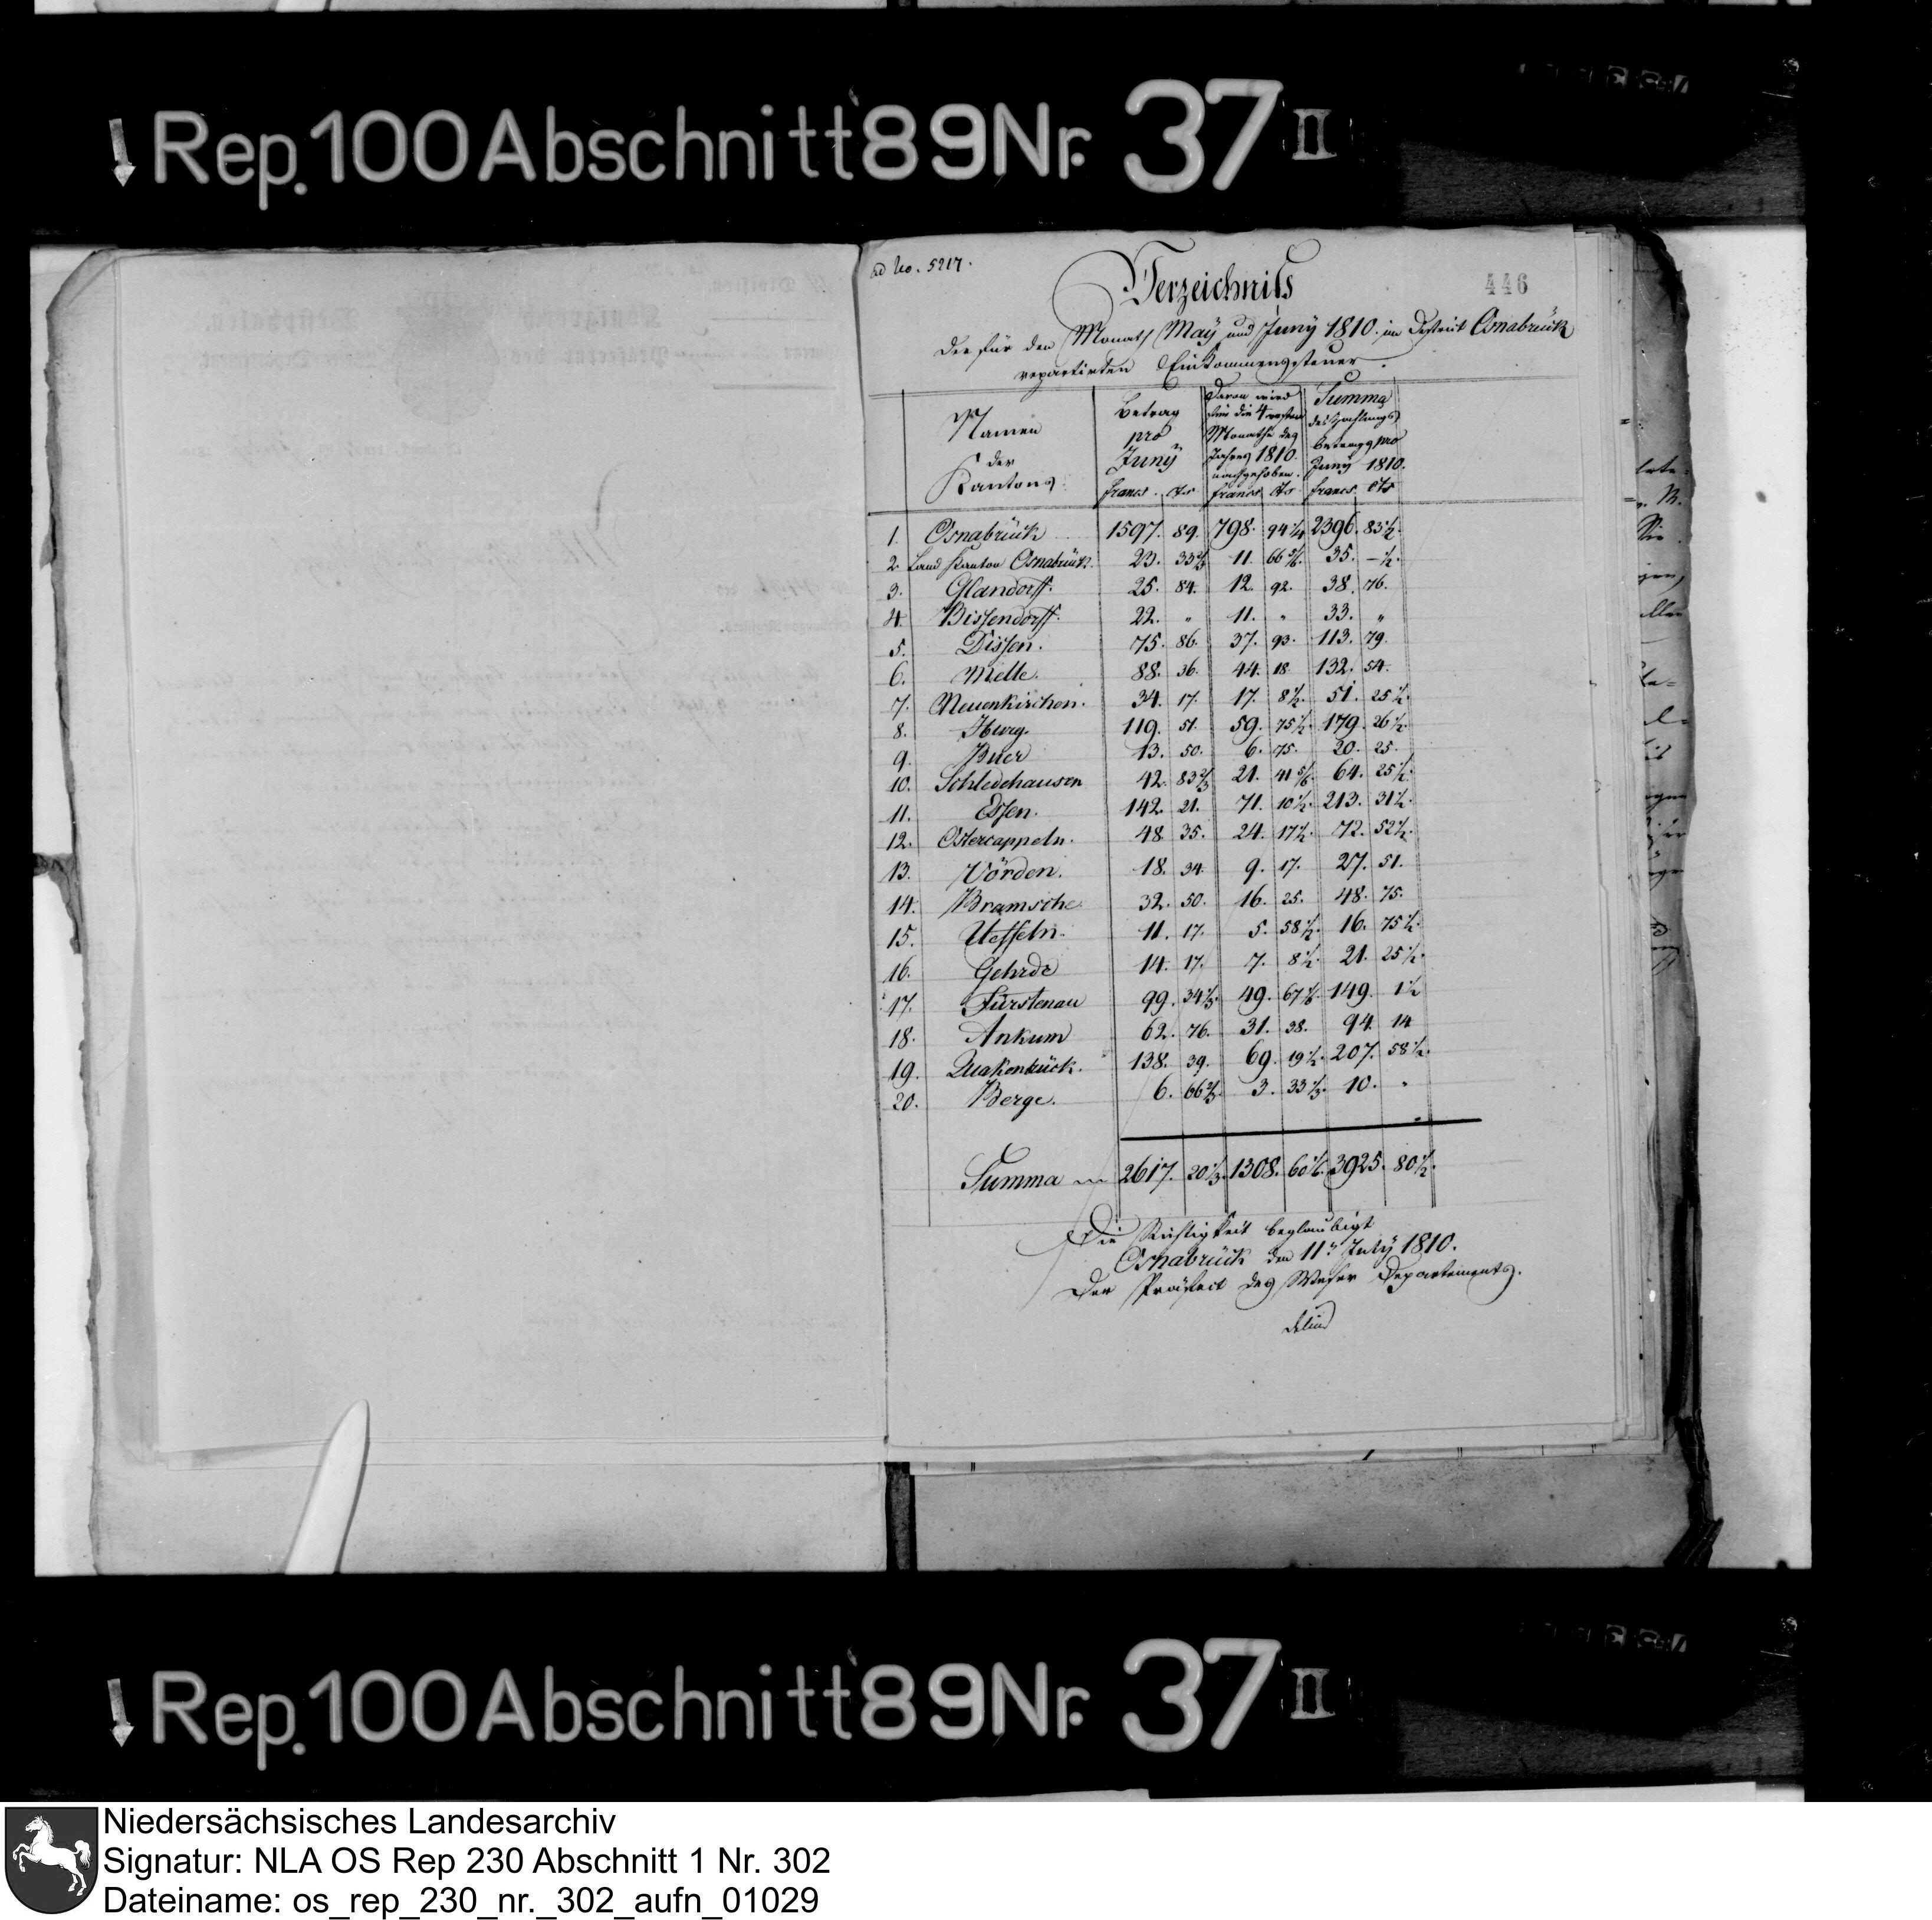 Rep. 100 Abschnitt 89 Nr. 37 II
ad No. 5217.
446
Verzeichniß
der für den Monath May und Juny 1810. im District Osnabrück
repartirten Einkommenssteuer.
Namen der Kantons. | Betrag pro Juny francs. cts | Davon wird für die 4 ersten Monathe des Jahres 1810 nachgehoben. francs cts | Summa des Zahlungs betrags pro Juny 1810. francs cts
1. Osnabrück 1597. 89. 798. 94 1/4 2396. 83 1/2.
2. Land Kanton Osnabrück. 23. 33 2/3 11. 66 5/6. 35. – 1/2.
3. Glandorff. 25. 84. 12. 92. 38. 76.
4. Bissendorff. 22. „ 11. „ 33. „
5. Dissen. 75. 86. 37. 93. 113. 79.
6. Melle. 88. 36. 44. 18. 132. 54.
7. Neuenkirchen. 34. 17. 17. 8 1/2. 51. 25 1/2.
8. Iburg. 119. 51. 59. 75 1/2. 179. 26 1/2.
9. Buer 13. 50. 6. 75. 20. 25.
10. Schledehausen 42. 83 2/3 21. 41 5/6. 64. 25 1/2.
11. Essen. 142. 21. 71. 10 1/2. 213. 31 1/2.
12. Ostercappeln. 48. 35. 24. 17 1/2. 72. 52 1/2.
13. Vörden. 18. 34. 9. 17. 27. 51.
14. Bramsche. 32. 50. 16. 25. 48. 75.
15. Ueffeln. 11. 17. 5. 58 1/2. 16. 75 1/2.
16. Gehrde 14. 17. 7. 8 1/2. 21. 25 1/2.
17. Fürstenau 99. 34 1/3. 49. 67 1/6. 149. 1 1/2
18. Ankum 62. 76. 31. 38. 94. 14
19. Quakenbrück. 138. 39. 69. 19 1/2. 207. 58 1/2.
20. Berge. 6. 66 2/3. 3. 33 1/3. 10. „
Summa 2617. 20 1/3. 1308. 60 1/6. 3925. 80 1/2.
Die Richtigkeit beglaubigt
Osnabrück den 11n July 1810.
Der Präfect des Weser Departements.
Delius
Rep. 100 Abschnitt 89 Nr. 37 II
Niedersächsisches Landesarchiv
Signatur: NLA OS Rep 230 Abschnitt 1 Nr. 302
Dateiname: os_rep_230_nr._302_aufn_01029